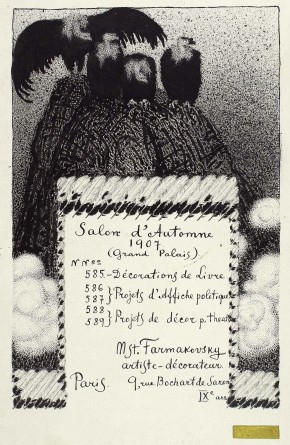 Salon d'Automne
1907
(Grand Palais)
N Nos
585.-Décorations de Livre
586
587 } Projets d'Affiche politique
588
589 } Projets de décor p. Theat
Mst. Farmakovsky
artiste-décorateur
Paris. 9, rue Bochart de Saron
IXe arr